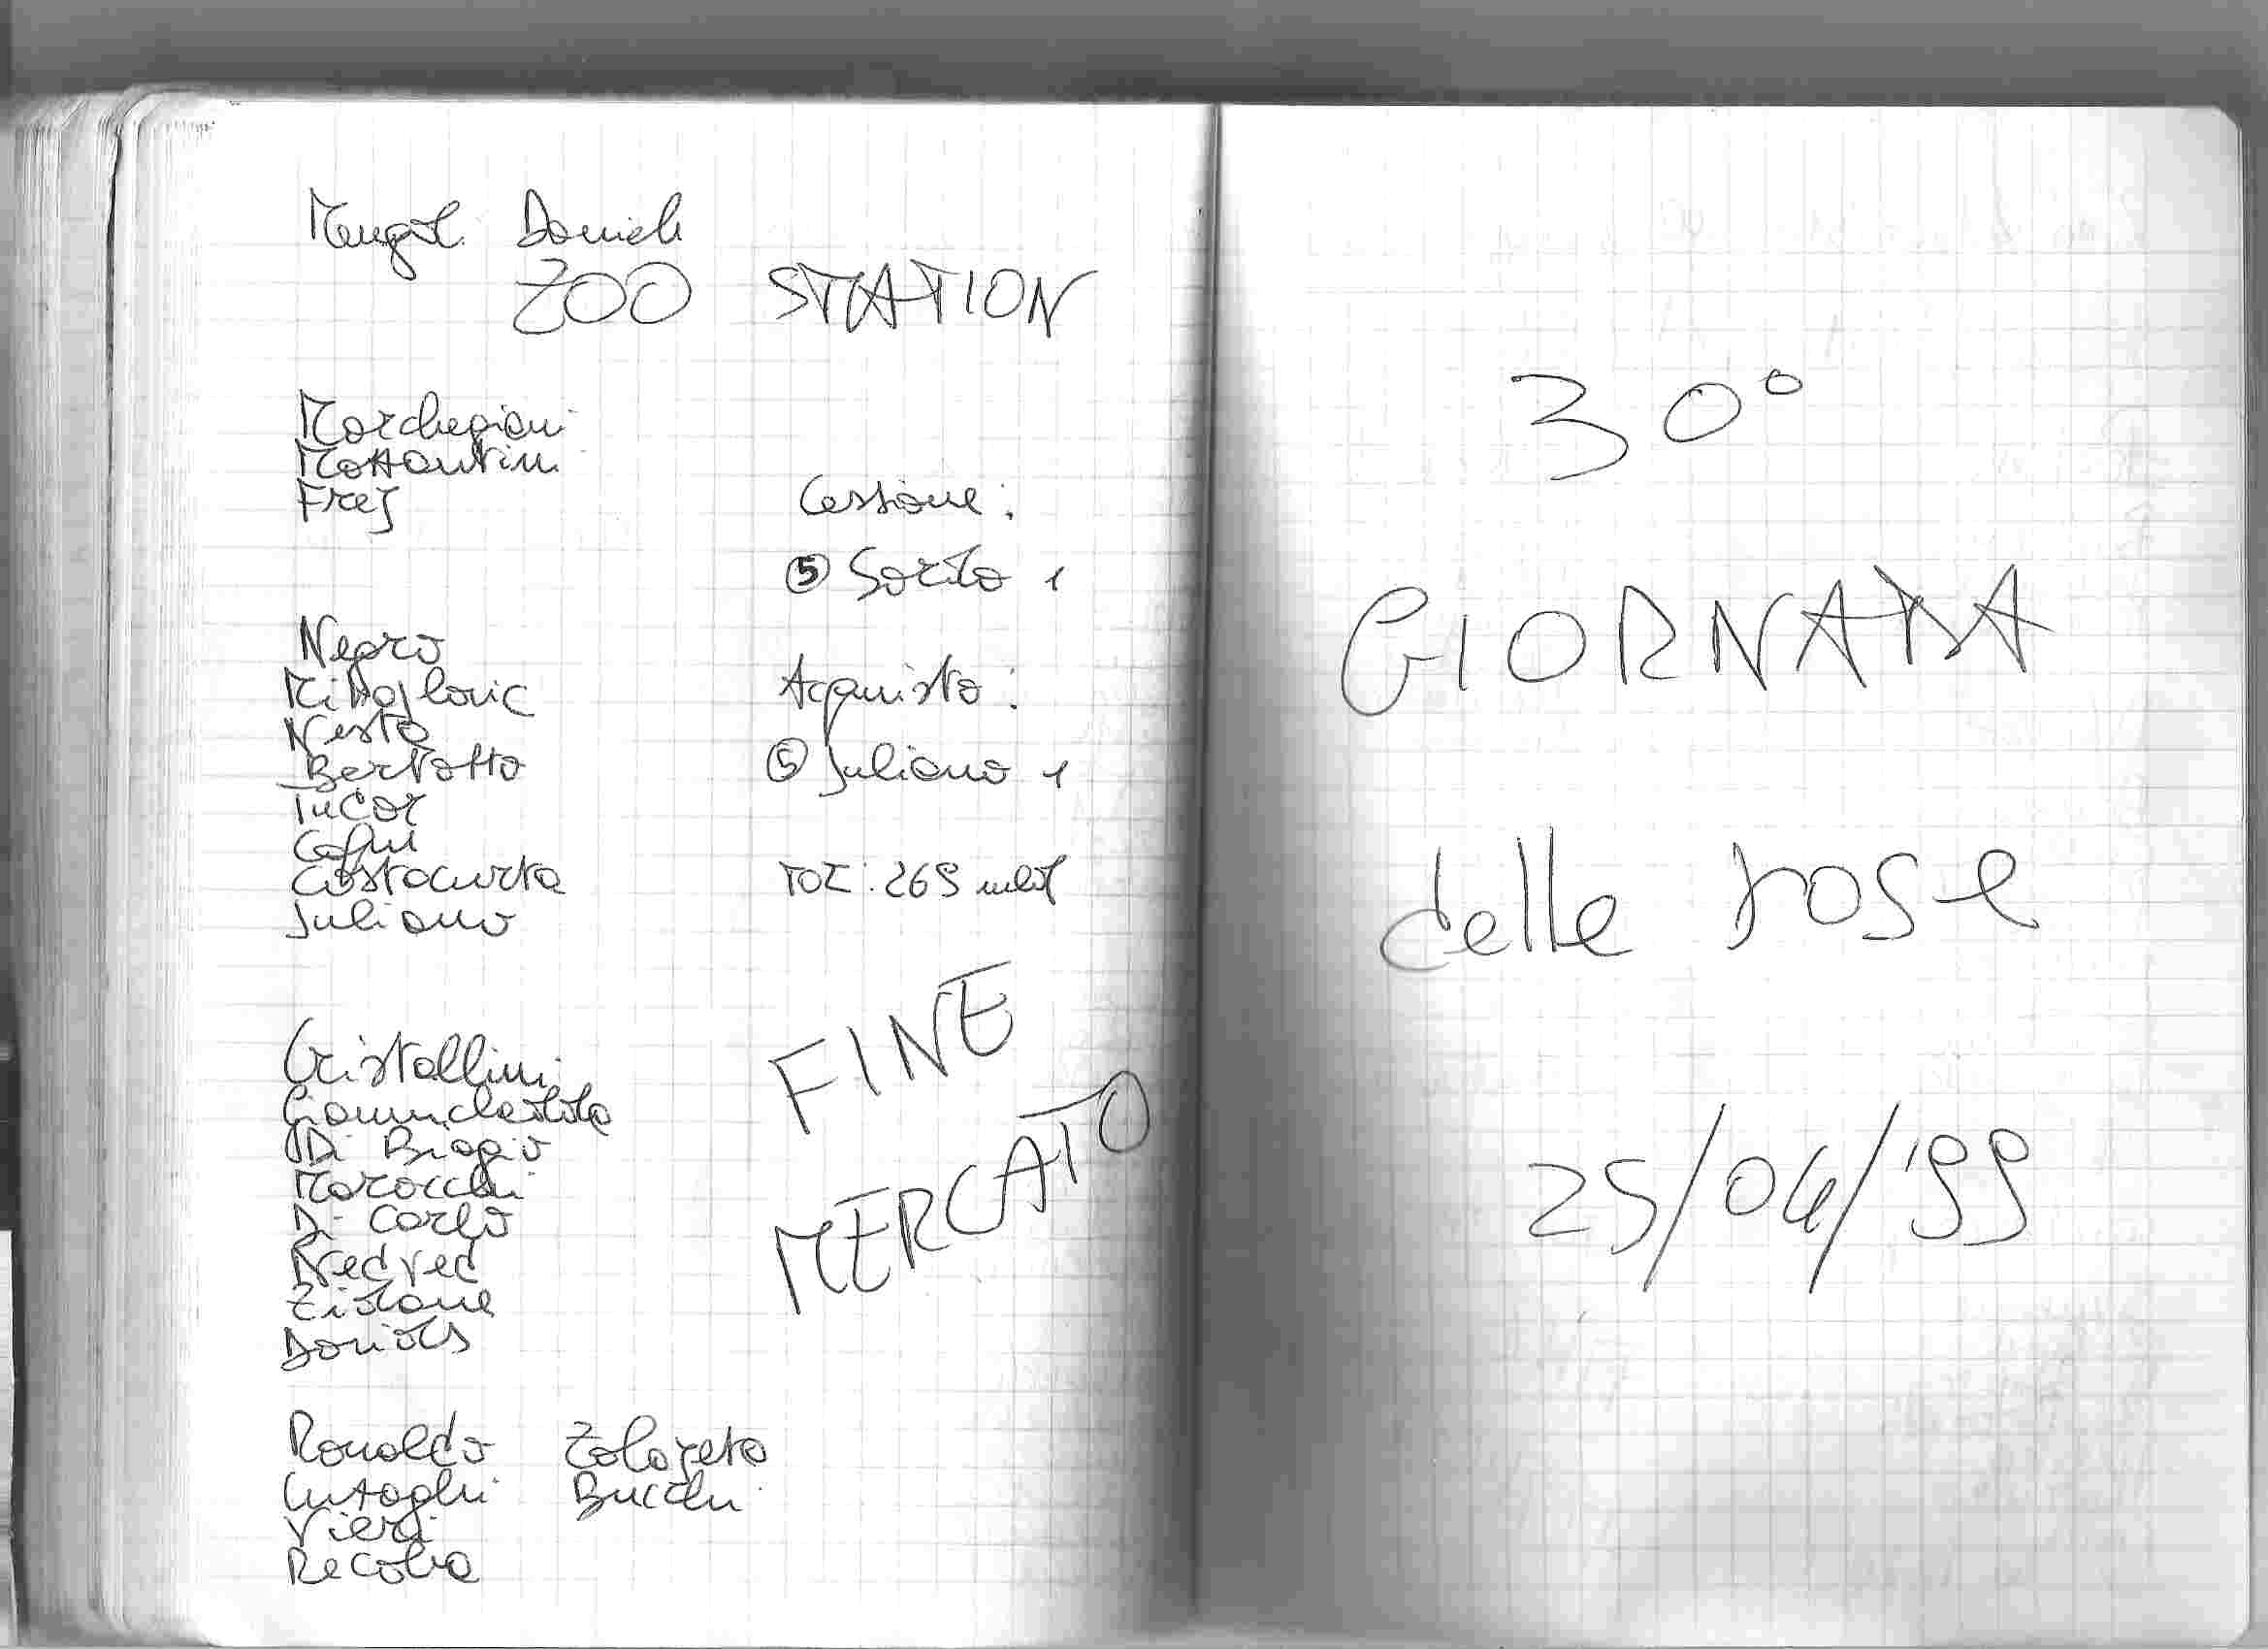 Daniele
ZOO STATION
Marchegiani
Mattantini
Frej
Negro
Mihajlovic
Nesta
Bertotto
Tudor
Cafu
Costacurta
Juliano
Cristallini
Giannichedda
Di Biagio
Marocchi
Di Carlo
Nedved
Zidane
Ronaldo
Inzaghi
Vieri
Recoba
Zalayeta
Bucchi
Cessione:
⑤ Sorito 1
Acquisto:
⑤ Juliano 1
TOT: 269
FINE
MERCATO
30°
GIORNATA
delle rose
25/04/'99